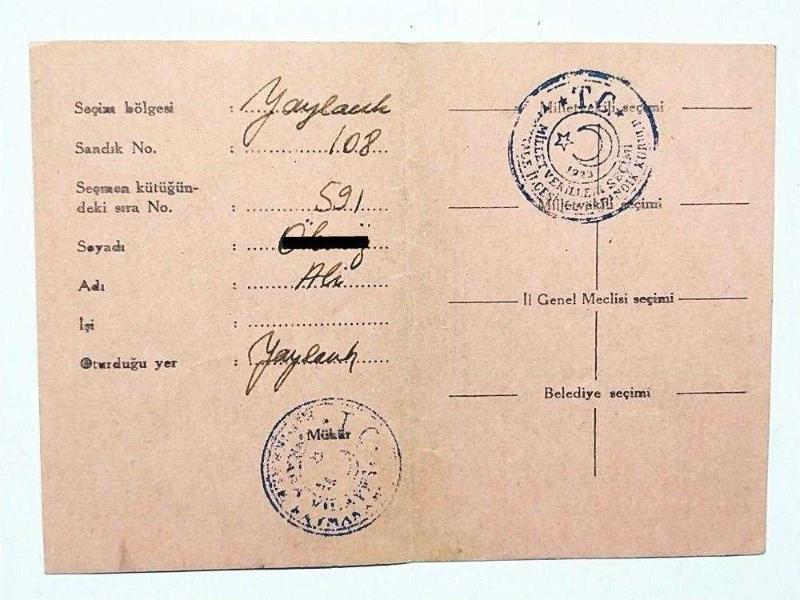 Seçim bölgesi : Yaylacık
Sandık No. : 108
Seçmen kütüğün-
deki sıra No. : 591
Soyadı :
Adı : Ali
İşi :
Oturduğu yer : Yaylacık
Mühür
T.C.
T.C.
1923
MİLLETVEKİLLERİ SEÇİMİ
Milletvekili seçimi
Milletvekili seçimi
İl Genel Meclisi seçimi
Belediye seçimi